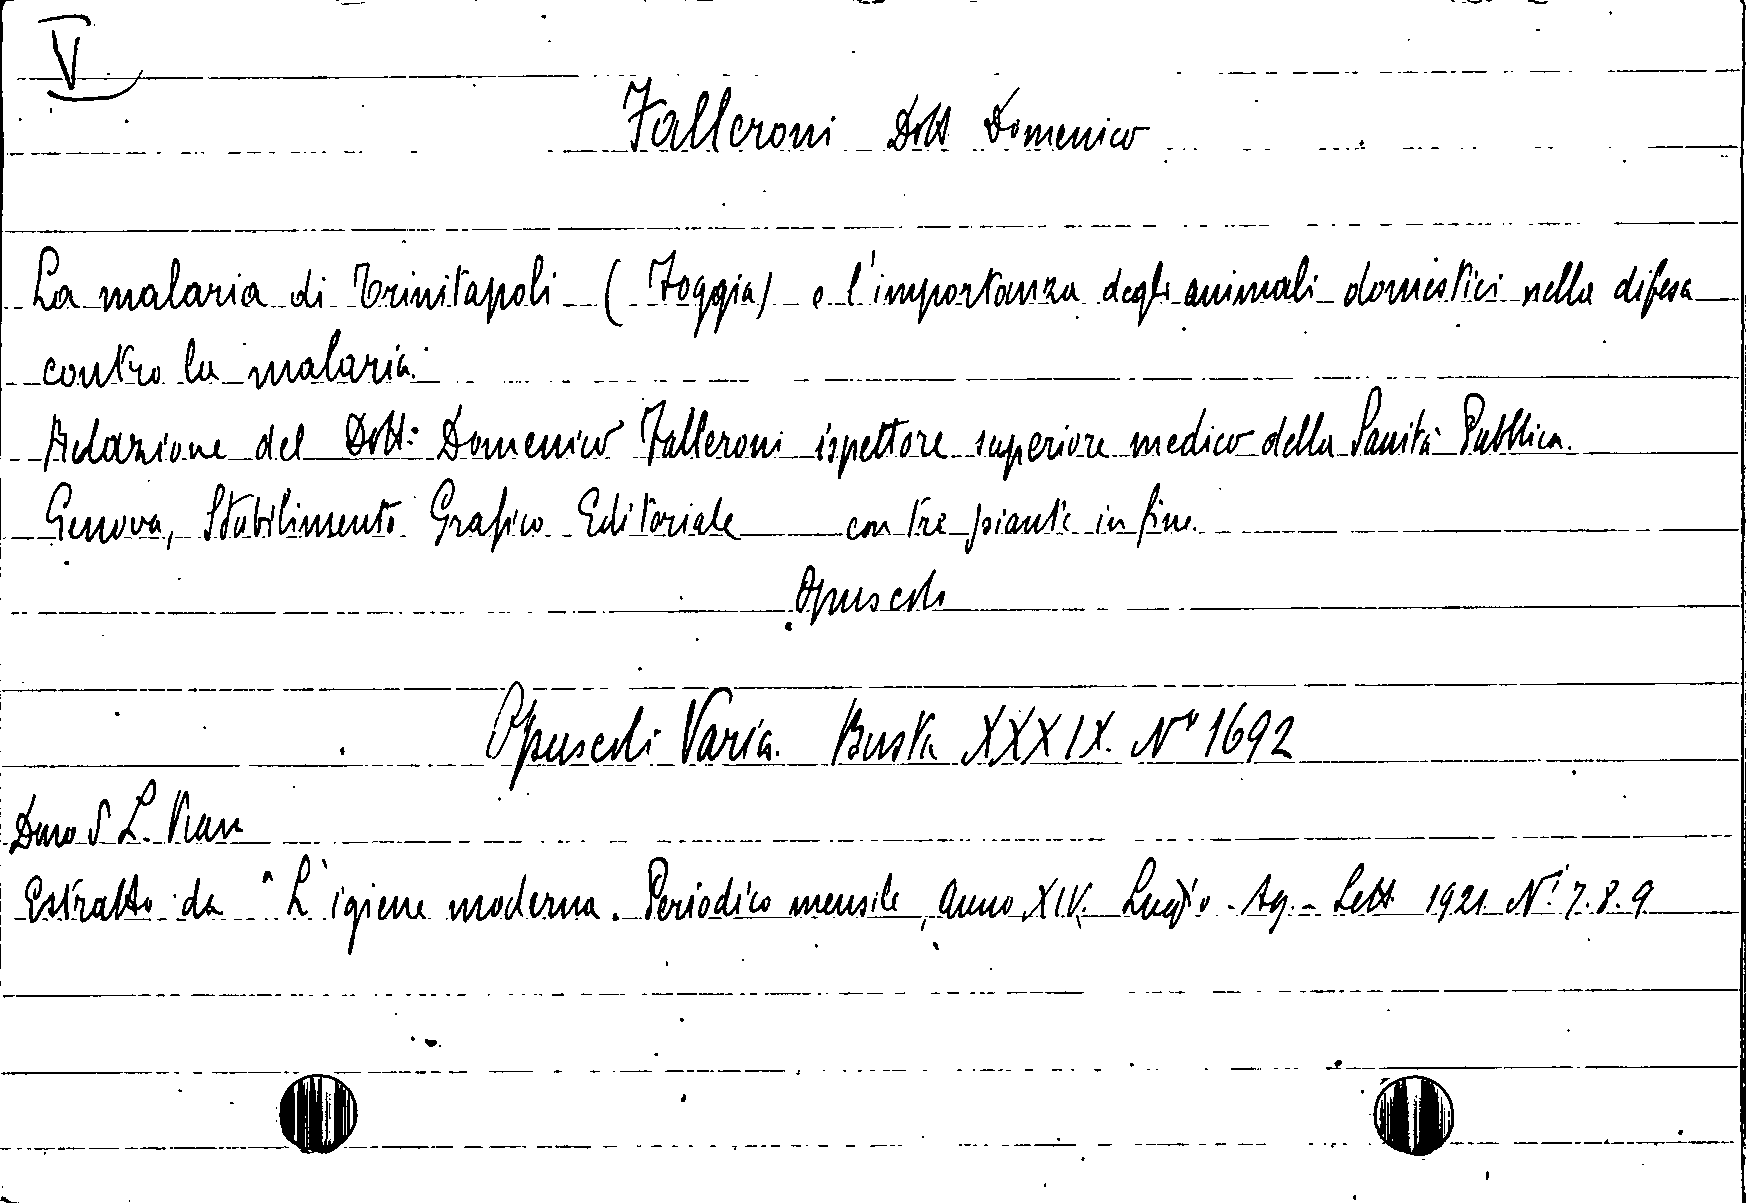 V
Falleroni Dott Domenico
La malaria di Trinitapoli ( Foggia) e l'importanza degli animali domestici nella difesa
contro la malaria.
Relazione del Dott. Domenico Falleroni ispettore superiore medico della Sanità Pubblica.
Genova, Stabilimento Grafico Editoriale con tre piante in fine.
Opuscolo
Opuscoli Varia. Busta XXXIX. N° 1692
L.
Estratto da "L'igiene moderna. Periodico mensile, Anno XIV. Luglio - Ag. - Sett. 1921 N.i 7.8.9